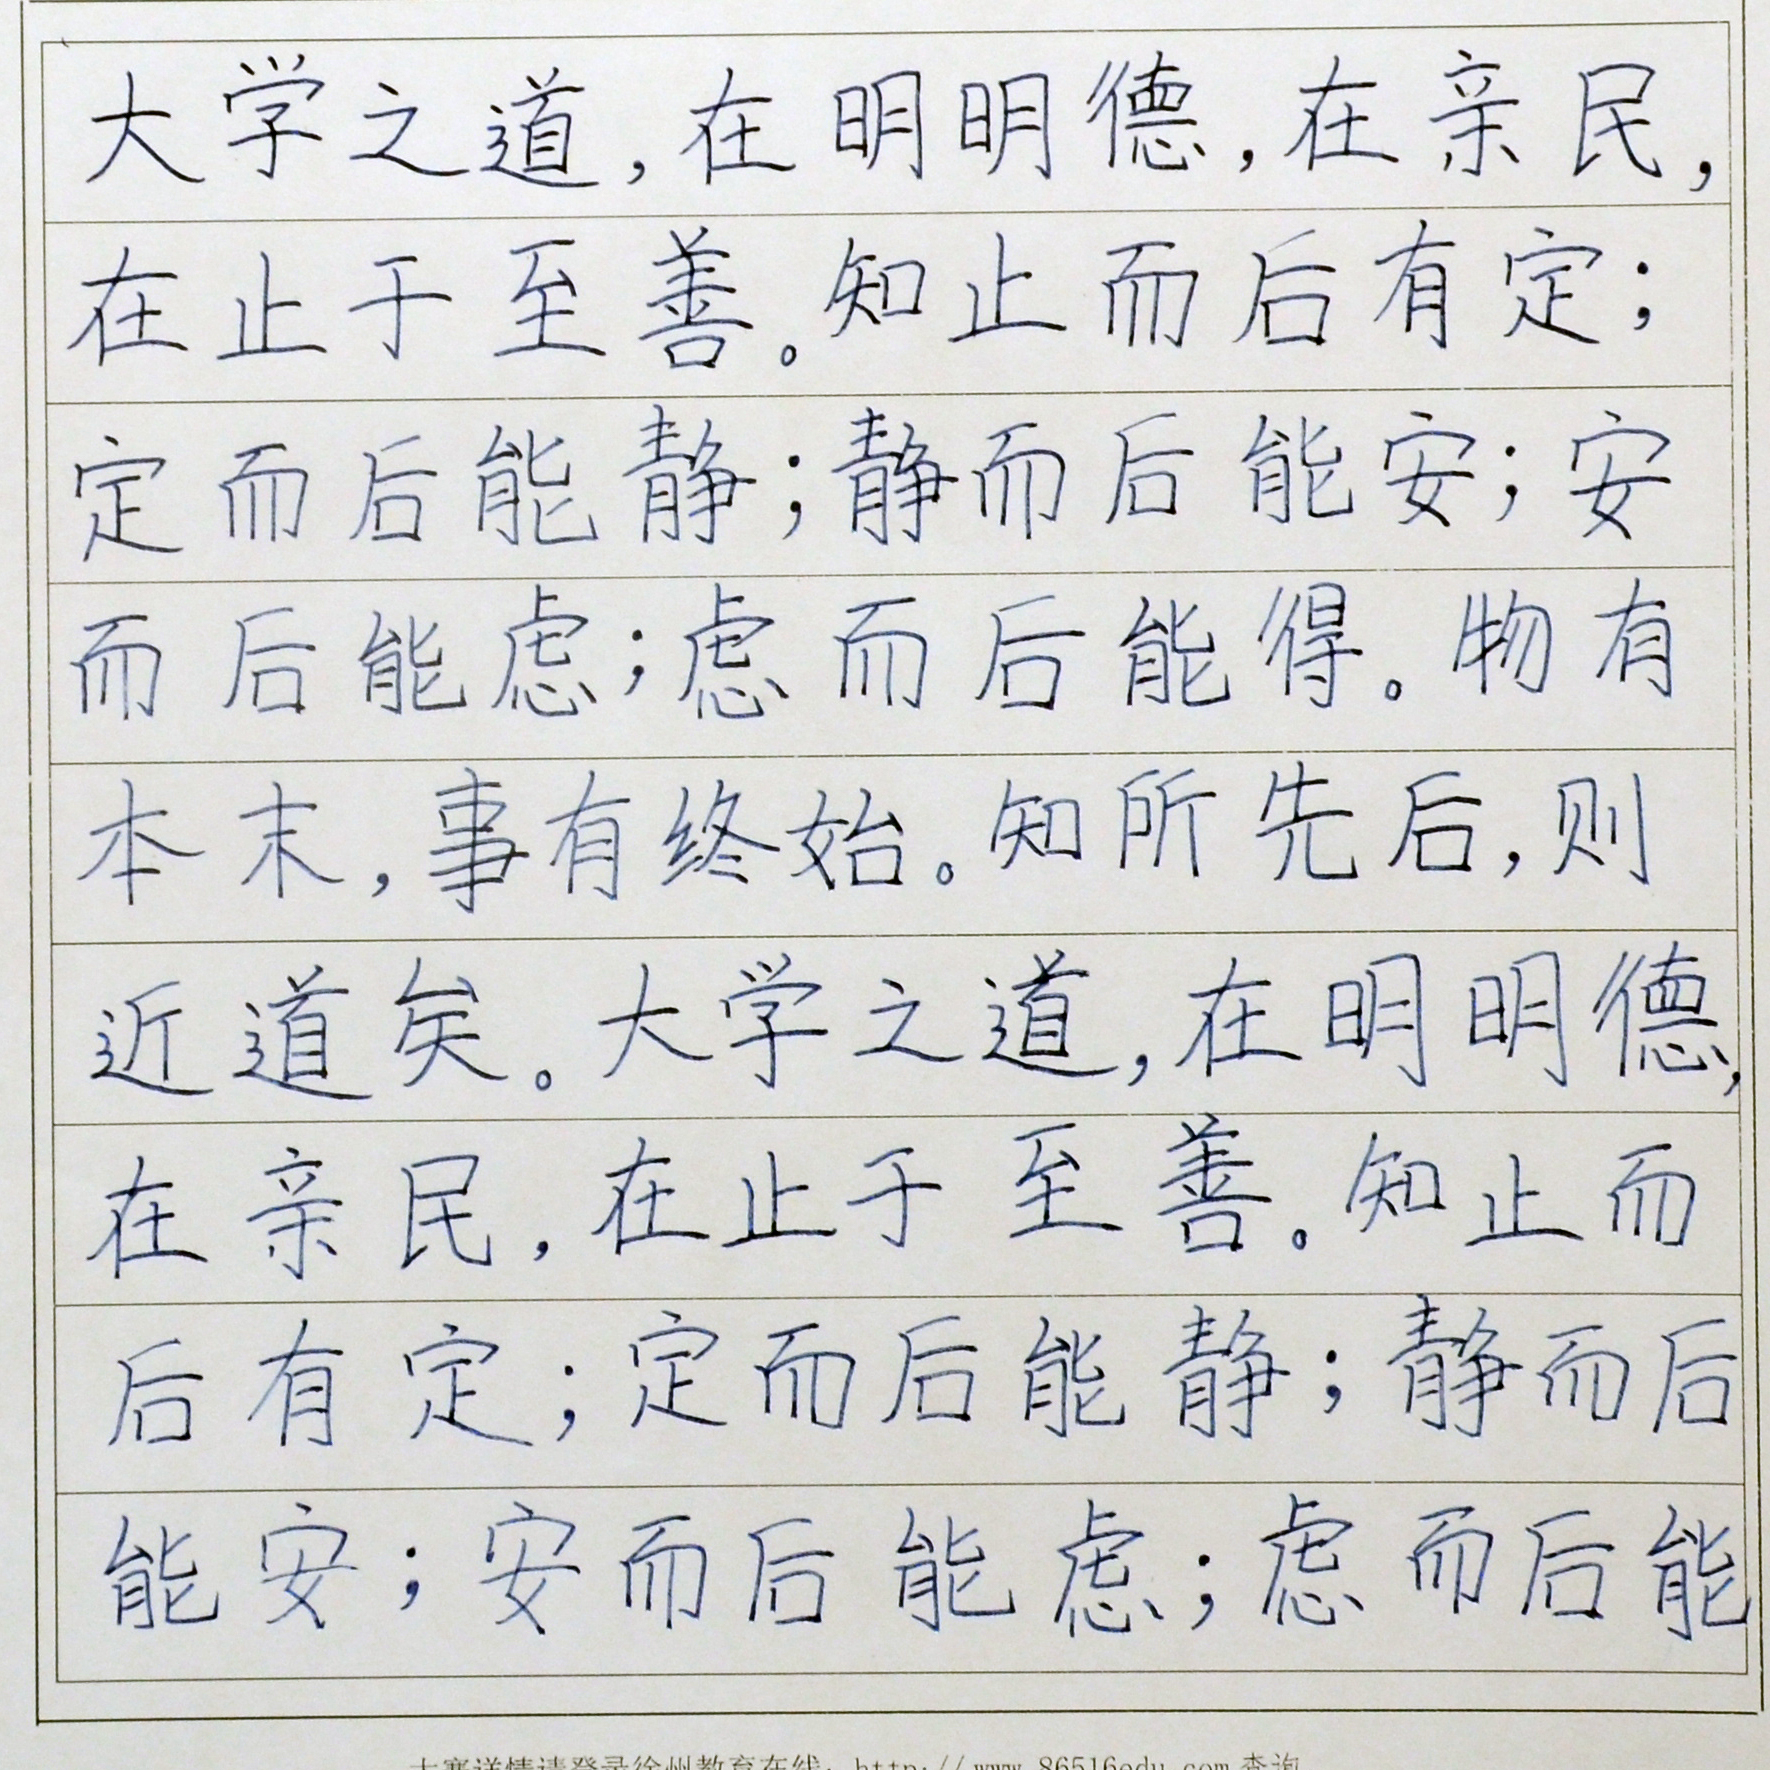 大学之道,在明明德,在亲民,
在止于至善。知止而后有定;
定而后能静;静而后能安;安
而后能虑;虑而后能得。物有
本末,事有终始。知所先后,则
近道矣。大学之道,在明明德,
在亲民,在止于至善。知止而
后有定;定而后能静;静而后
能安;安而后能虑;虑而后能
大赛详情请登录徐州教育在线:http://www.86516edu.com查询